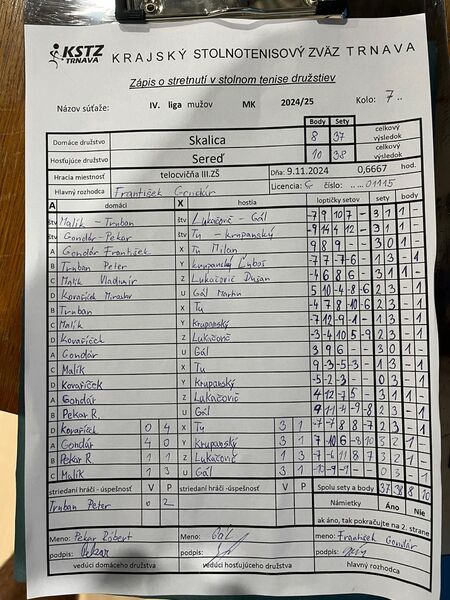 KSTZ TRNAVA KRAJSKÝ STOLNOTENISOVÝ ZVÄZ TRNAVA
Zápis o stretnutí v stolnom tenise družstiev
Názov súťaže: IV. liga mužov MK 2024/25 Kolo: 7..
Body Sety
Domáce družstvo Skalica 8 37 celkový výsledok
Hosťujúce družstvo Sereď 10 38 celkový výsledok
Hracia miestnosť telocvičňa III.ZŠ Dňa: 9.11.2024 0,6667 hod.
Hlavný rozhodca František Gondár Licencia: číslo: 01115
A domáci X hostia loptičky setov sety body
štv Malík - Trnban štv Lukačovič - Gál -7 9 10 7 - 3 1 1 -
štv Gondár - Pekar štv Tu - Krupanský -9 14 4 12 - 3 1 1 -
A Gondár František X Tu Milan 9 8 9 - - 3 0 1 -
B Trnban Peter Y Krupanský Ľuboš -7 -7 7 -6 - 1 3 - 1
C Malík Vladimír Z Lukačovič Dušan -4 6 8 6 - 3 1 1 -
D Kovaříček Miroslav U Gál Martin 5 10 -4 -8 -6 2 3 - 1
B Trnban X Tu -4 7 8 10 6 2 3 - 1
C Malík Y Krupanský -7 12 -9 -1 - 1 3 - 1
D Kovaříček Z Lukačovič -3 -4 10 5 -9 2 3 - 1
A Gondár U Gál 3 9 6 - - 3 0 1 -
C Malík X Tu 9 -3 -5 -3 - 1 3 - 1
D Kovaříček Y Krupanský -5 -2 -3 - - 0 3 - 1
A Gondár Z Lukačovič 4 12 -7 5 - 3 1 1 -
B Pekar R. U Gál 9 11 -4 -9 -8 2 3 - 1
D Kovaříček 0 4 X Tu 3 1 -7 -7 8 8 -7 2 3 - 1
A Gondár 4 0 Y Krupanský 3 1 7 -10 6 -8 10 3 2 1 -
B Pekar R. 1 1 Z Lukačovič 1 3 7 -6 11 8 7 3 2 1 -
C Malík 1 3 U Gál 3 1 -10 -9 -9 - - 0 3 - 1
striedaní hráči - úspešnosť V P striedaní hráči -úspešnosť V P Spolu sety a body 37 38 8 10
Trnban Peter 0 2
Námietky Áno Nie
ak áno, tak pokračujte na 2. strane
Meno: Pekar Róbert Meno: Gál meno: František Gondár
podpis: podpis: podpis:
vedúci domáceho družstva vedúci hosťujúceho družstva hlavný rozhodca